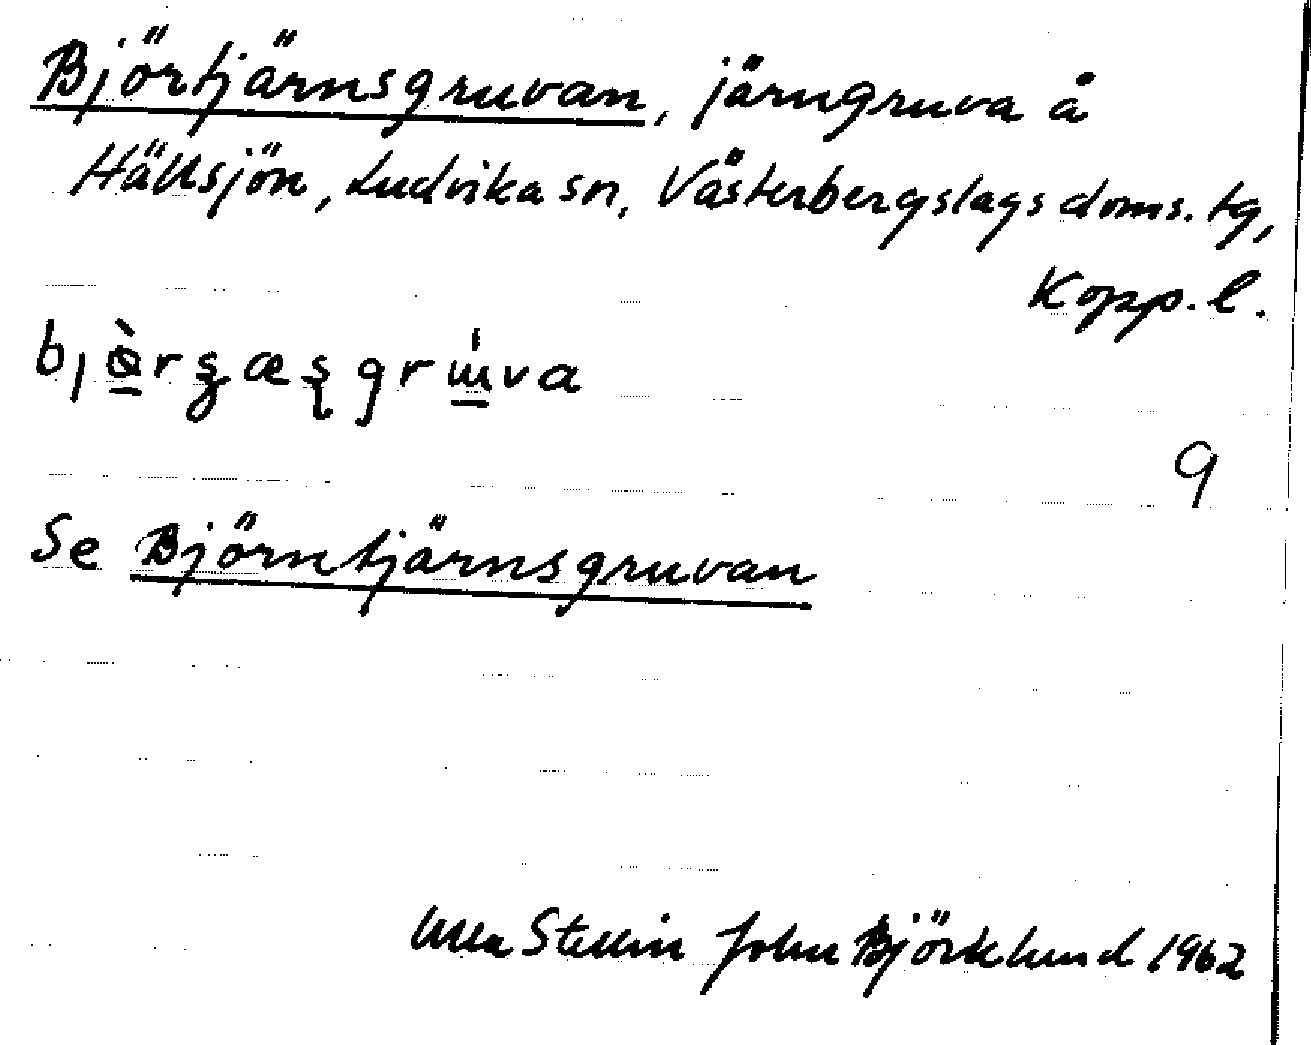 Björtjärnsgruvan, järngruva å
Hällsjön, Ludvika sn, Västerbergslags doms. tg,
Kopp. l.
9
Se Björntjärnsgruvan
Ulla Stellin John Björklund 1962